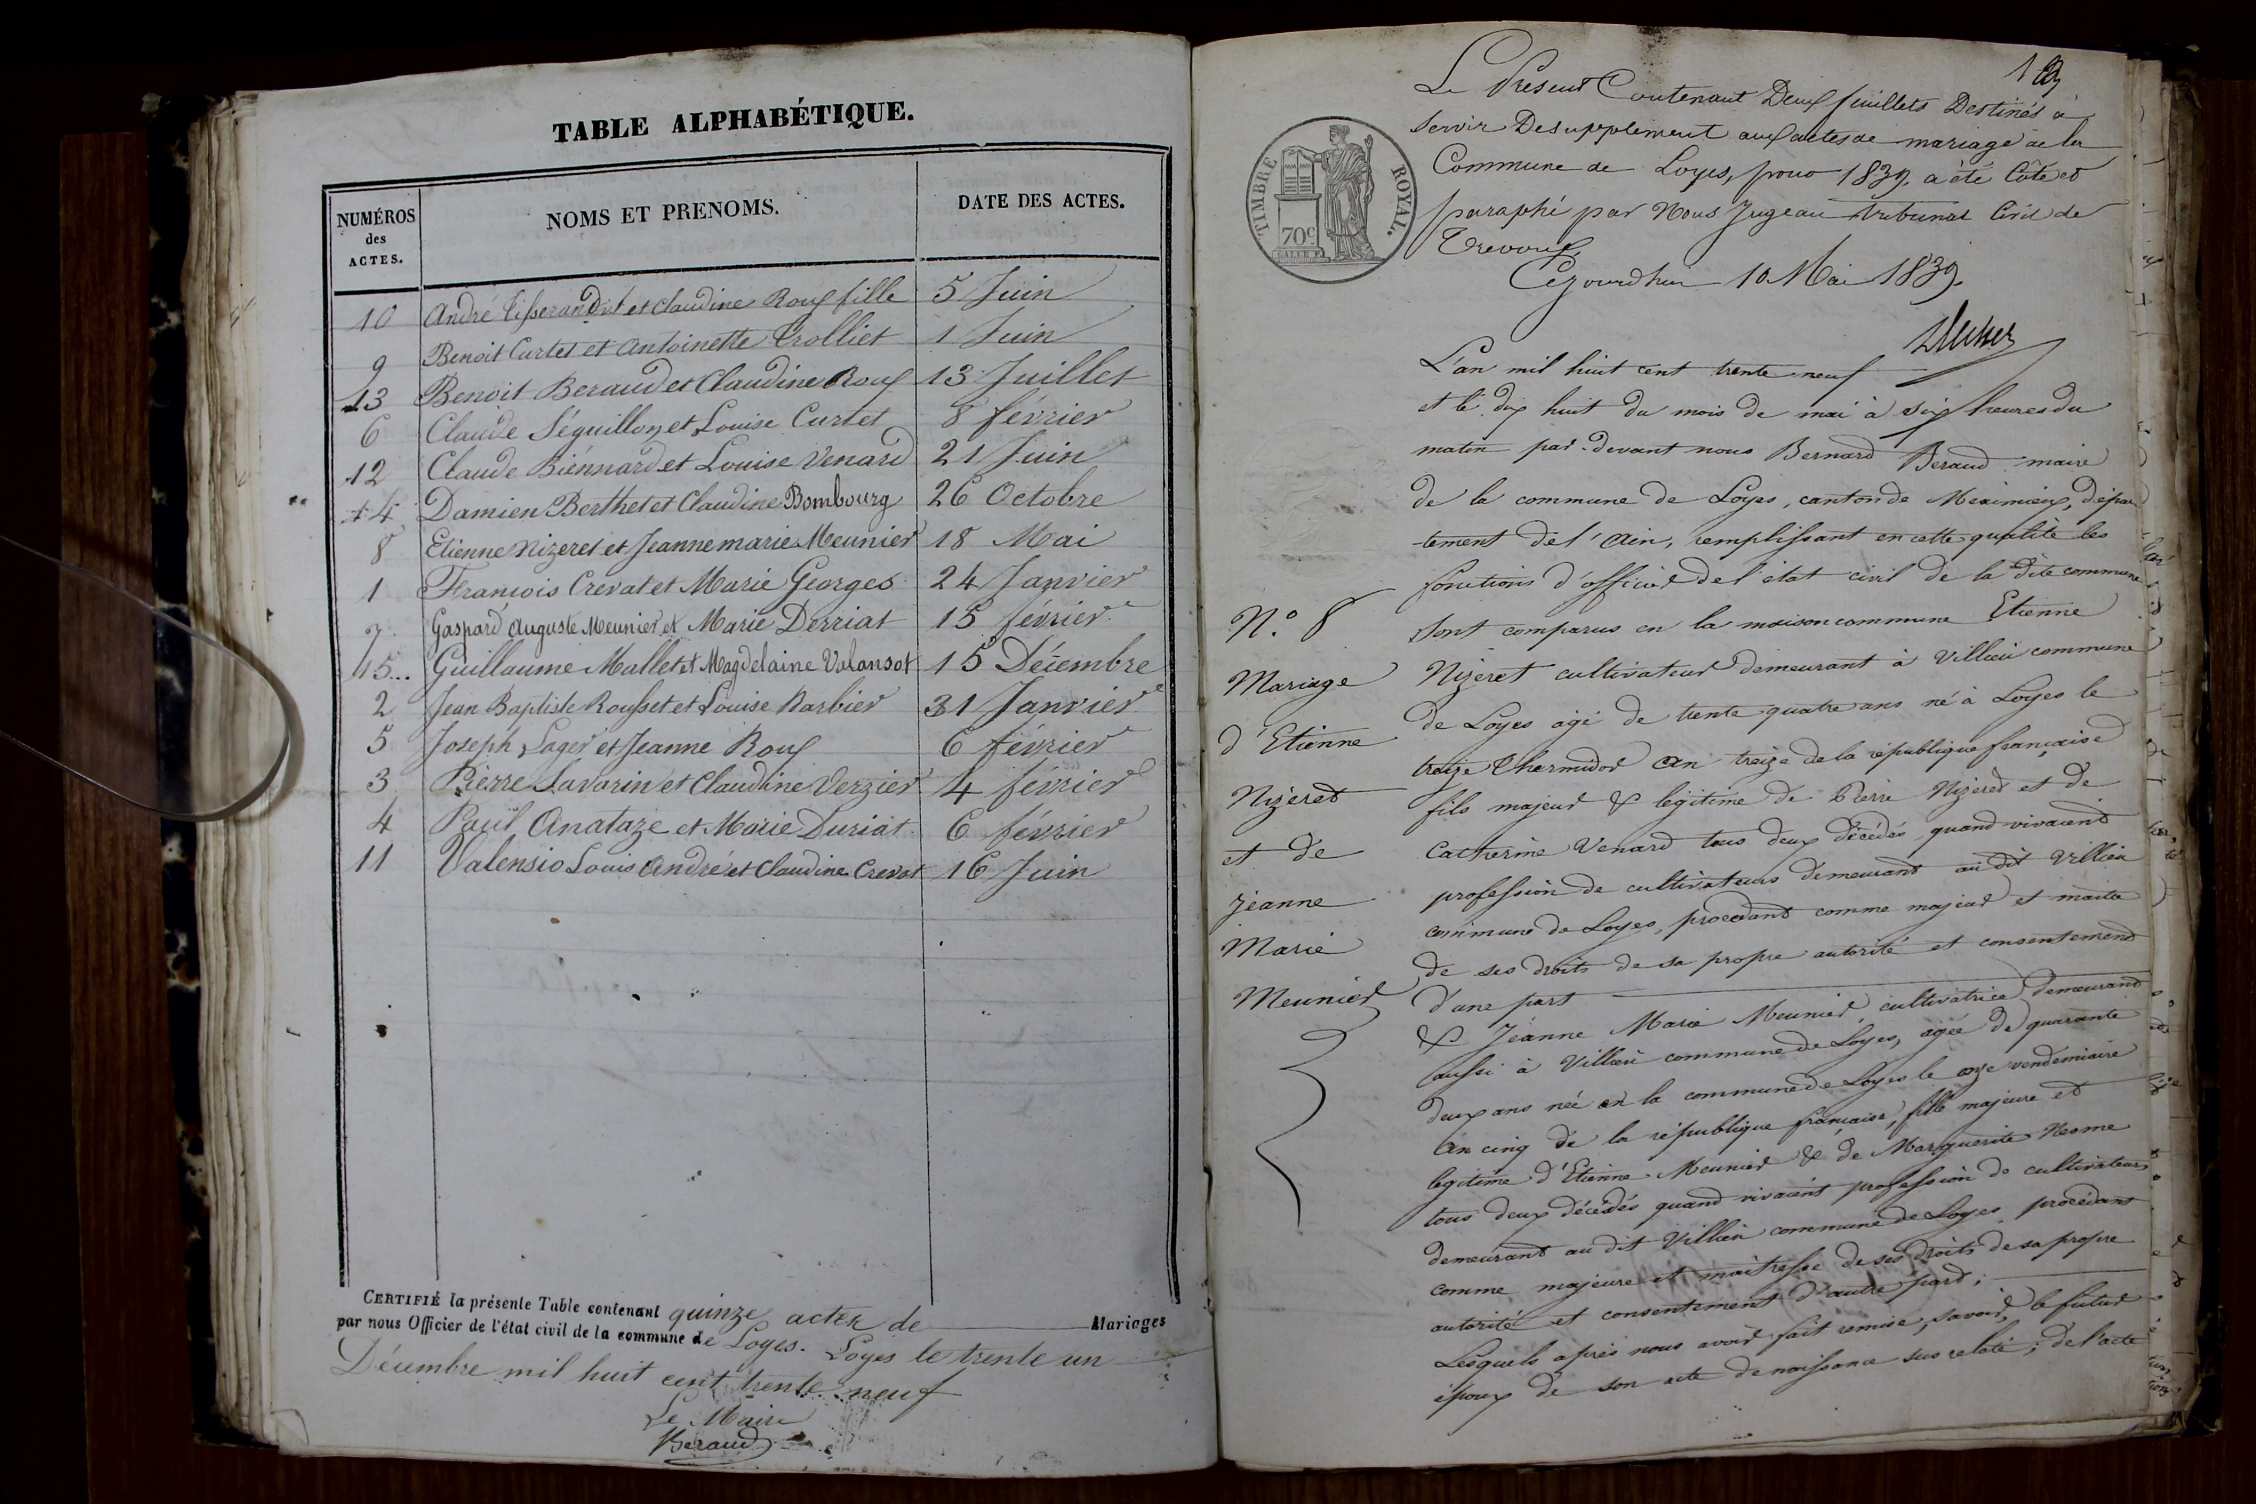 TABLE ALPHABÉTIQUE.
NUMÉROS des ACTES. NOMS ET PRENOMS. DATE DES ACTES.
10 André Tisserandot et Claudine Roux fille 5 Juin
9 Benoit Curtet et Antoinette Trolliet 1 Juin
13 Benoit Beraud et Claudine Roux 13 Juillet
6 Claude Séguillon et Louise Curtet 8 février
12 Claude Biénnard et Louise Venard 21 Juin
14 Damien Berthet et Claudine Bombourg 26 Octobre
8 Etienne Nizeret et Jeanne marie Meunier 18 Mai
1 François Crevat et Marie Georges 24 Janvier
7 Gaspard Auguste Meunier et Marie Derriat 15 février
15... Guillaume Mallet et Magdelaine Valansot 15 Décembre
2 Jean Baptiste Rousset et Louise Barbier 31 Janvier
5 Joseph Lager et Jeanne Roux 6 février
3 Pierre Savarin et Claudine Verzier 4 février
4 Paul Anataze et Marie Duriat 6 février
11 Valensio Louis André et Claudine Crevat 16 Juin
CERTIFIÉ la présente Table contenant quinze actes de Mariages
par nous Officier de l'état civil de la commune de Loyes. Loyes le trente un
Décembre mil huit cent trente neuf
Le Maire
Beraud
1
Le Présent Contenant Deux feuillets Destinés à
servir De supplément aux actes de mariage de la
Commune de Loyes, pour 1839, a été Côté et
paraphé par Nous Juge au tribunal Civil de
Trevoux
Cejourdhui 10 Mai 1839.
TIMBRE ROYAL.
70c
L'an mil huit cent trente neuf
et le dix huit du mois de mai à six heures du
matin par devant nous Bernard Beraud maire
de la commune de Loyes, canton de Meximieux, dépar
tement de l'Ain, remplissant en cette qualité les
fonctions d'officier de l'état civil de la dite commune
N.o 8
Mariage
d'Etienne
Nizeret
et de
Jeanne
Marie
Meunier
Sont comparus en la maison commune Etienne
Nizeret cultivateur demeurant à Villieu commune
de Loyes agé de trente quatre ans né à Loyes le
treize Thermidor an treize de la république française
fils majeur & légitime de Pierre Nizeret et de
Catherine Venard tous deux décédés quand vivaient
profession de cultivateurs demeurant au dit Villieu
commune de Loyes, procédant comme majeur et maitre
de ses droits de sa propre autorité et consentement
d'une part
& Jeanne Marie Meunier, cultivatrice demeurant
aussi à Villieu commune de Loyes, agée de quarante
deux ans née en la commune de Loyes le onze vendémiaire
an cinq de la république française, fille majeure et
legitime d'Etienne Meunier & de Marguerite Nesme
tous deux décédés quand vivaient profession de cultivateurs
demeurant au dit Villieu commune de Loyes procédant
comme majeure et maitresse de ses droits de sa propre
autorité et consentement d'autre part;
Lesquels après nous avoir fait remise, savoir, le futur
époux de son acte de naissance sus relaté; de l'acte